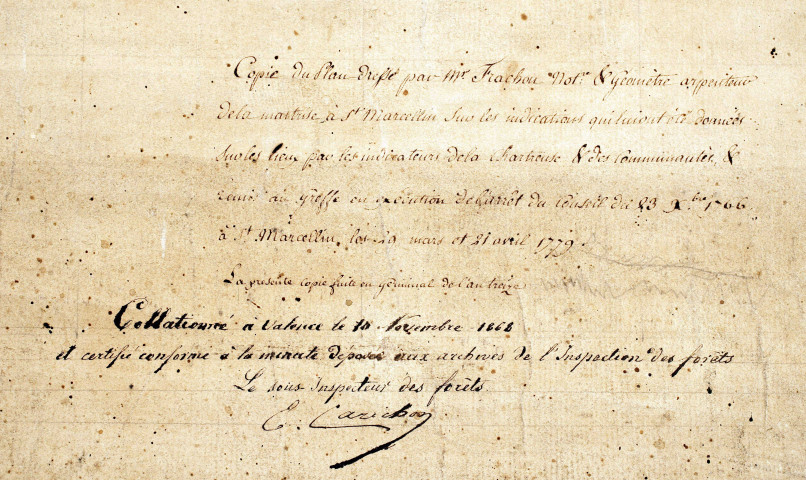 Copie du Plan dressé par Mr. Frachon Notre. & Geomètre arpenteur
de la maitrise à St. Marcellin sur les indications qui lui ont été données
sur les lieux par les indicateurs de la Chartreuse & des Communautés, &
remis au greffe en execution de l'arrêt du Conseil du 23 Xbre 1766.
à St. Marcellin, les 29 mars et 21 avril 1779.
La presente copie faite en germinal de l'an treize
Collationné à Valence le 10 Novembre 1868
et certifié conforme à la minute déposée aux archives de l'Inspection des forêts
Le sous Inspecteur des forêts